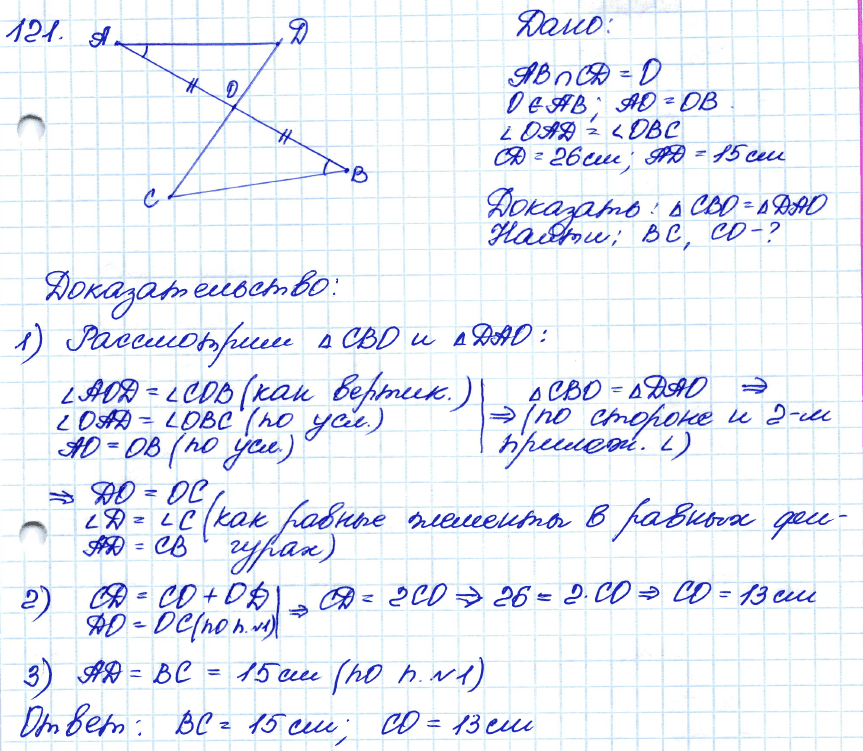 121.
A
D
O
B
C
Дано:
AB∩CD = O
O∈AB; AO = OB.
∠OAD = ∠OBC
CD = 26 см; AD = 15 см
Доказать: △CBO = △DAO
Найти; BC, CO - ?
Доказательство:
1) Рассмотрим △CBO и △DAO:
∠AOD = ∠COB (как вертик.)
∠OAD = ∠OBC (по усл.)
AO = OB (по усл.)
△CBO = △DAO ⇒
⇒ (по стороне и 2-м
прилеж. ∠)
⇒ DO = OC
∠D = ∠C (как равные элементы в равных фи-
AD = CB гурах)
2) CD = CO + OD
DO = OC (по п. №1)
⇒ CD = 2CO ⇒ 26 = 2·CO ⇒ CO = 13 см
3) AD = BC = 15 см (по п. №1)
Ответ: BC = 15 см; CO = 13 см